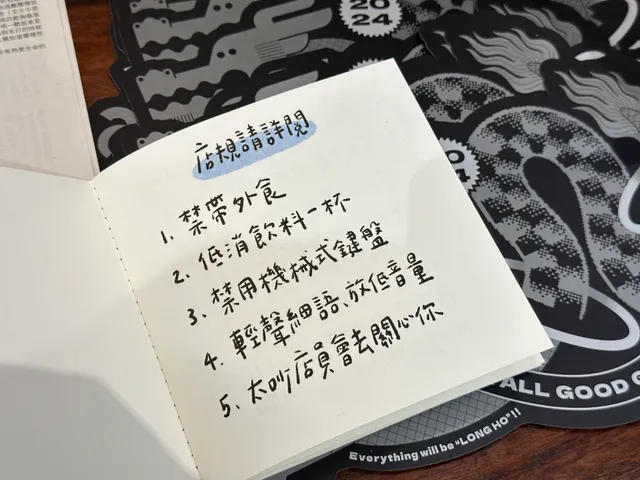 店規請詳閱
1. 禁帶外食
2. 低消飲料一杯
3. 禁用機械式鍵盤
4. 輕聲細語、放低音量
5. 太吵店員會去關心你
2024
ALL GOOD
Everything will be "LONG HO"!!